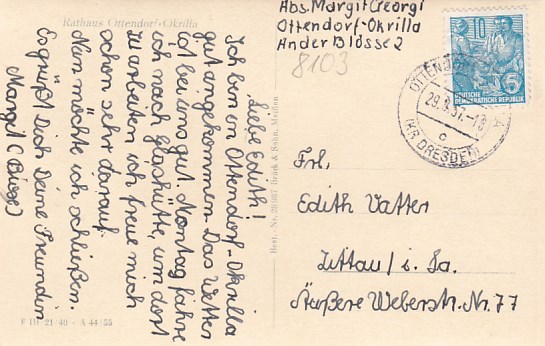 Rathaus Ottendorf-Okrilla
Liebe Edith!
Ich bin in Ottendorf-Okrilla
gut angekommen. Das Wetter
ist bei uns gut. Montag fahre
ich nach Glashütte, um dort
zu arbeiten ich freue mich
schon sehr darauf.
Nun möchte ich schließen.
Es grüßt Dich Deine Freundin
Margit (Biese)
F III 21/40 - A 44/55
Best.-Nr. 28987 Brück & Sohn, Meißen
Abs. Margit Georgi
Ottendorf-Okrilla
An der Blösse 2
8103
10
5
DEUTSCHE
DEMOKRATISCHE REPUBLIK
OTTENDORF
29.8.57.-18
c
(KR DRESDEN)
Frl.
Edith Vatter
Zittau / i. Sa.
Äußere Weberstr. Nr. 77